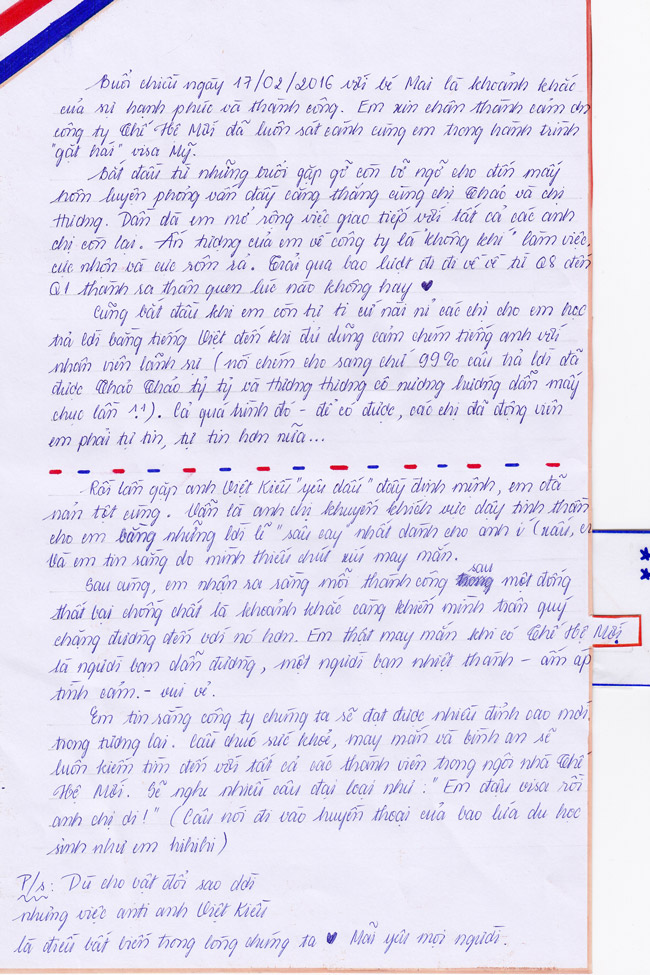 Buổi chiều ngày 17/02/2016 với bé Mai là khoảnh khắc
của sự hạnh phúc và thành công. Em xin chân thành cảm ơn
công ty Thế Hệ Mới đã luôn sát cánh cùng em trong hành trình
"gặt hái" visa Mỹ.
Bắt đầu từ những buổi gặp gỡ còn bỡ ngỡ cho đến mấy
hôm luyện phỏng vấn đầy căng thẳng cùng chị Thảo và chị
Thương. Dần dà em mở rộng việc giao tiếp với tất cả các anh
chị còn lại. Ấn tượng của em về công ty là "không khí" làm việc,
cực nhộn và cực rôm rả. Trải qua bao lượt đi đi về về từ Q8 đến
Q1 thành ra thân quen lúc nào không hay ♥
Cũng bắt đầu khi em còn tự ti cứ nài nỉ các chị cho em học
trả lời bằng tiếng Việt đến khi đủ dũng cảm chém tiếng anh với
nhân viên lãnh sự (nói chém cho sang chứ 99% câu trả lời đã
được Thảo Thảo tỷ tỷ và Thương Thương cô nương hướng dẫn mấy
chục lần :)). Cả quá trình đó - để có được, các chị đã động viên
em phải tự tin, tự tin hơn nữa...
Rồi lần gặp anh Việt Kiều "yêu dấu" đầy định mệnh, em đã
nản tột cùng. Vẫn là anh chị khuyến khích vực dậy tinh thần
cho em bằng những lời lẽ "sâu cay" nhất dành cho anh í (xấu,
Và em tin rằng do mình thiếu chút xíu may mắn.
Sau cùng, em nhận ra rằng mỗi thành công sau một đống
thất bại chồng chất là khoảnh khắc càng khiến mình trân quý
chặng đường đến với nó hơn. Em thật may mắn khi có Thế Hệ Mới
là người bạn dẫn đường, một người bạn nhiệt thành - ấm áp
tình cảm - vui vẻ.
Em tin rằng công ty chúng ta sẽ đạt được nhiều đỉnh cao mới
trong tương lai. Cầu chúc sức khoẻ, may mắn và bình an sẽ
luôn kiếm tìm đến với tất cả các thành viên trong ngôi nhà Thế
Hệ Mới. Sẽ nghe nhiều câu đại loại như: "Em đậu visa rồi
anh chị ơi!" (Câu nói đi vào huyền thoại của bao lứa du học
sinh như em hihihi)
P/s: Dù cho vật đổi sao dời
nhưng việc anti anh Việt Kiều
là điều bất biến trong lòng chúng ta ♥ Mãi yêu mọi người.